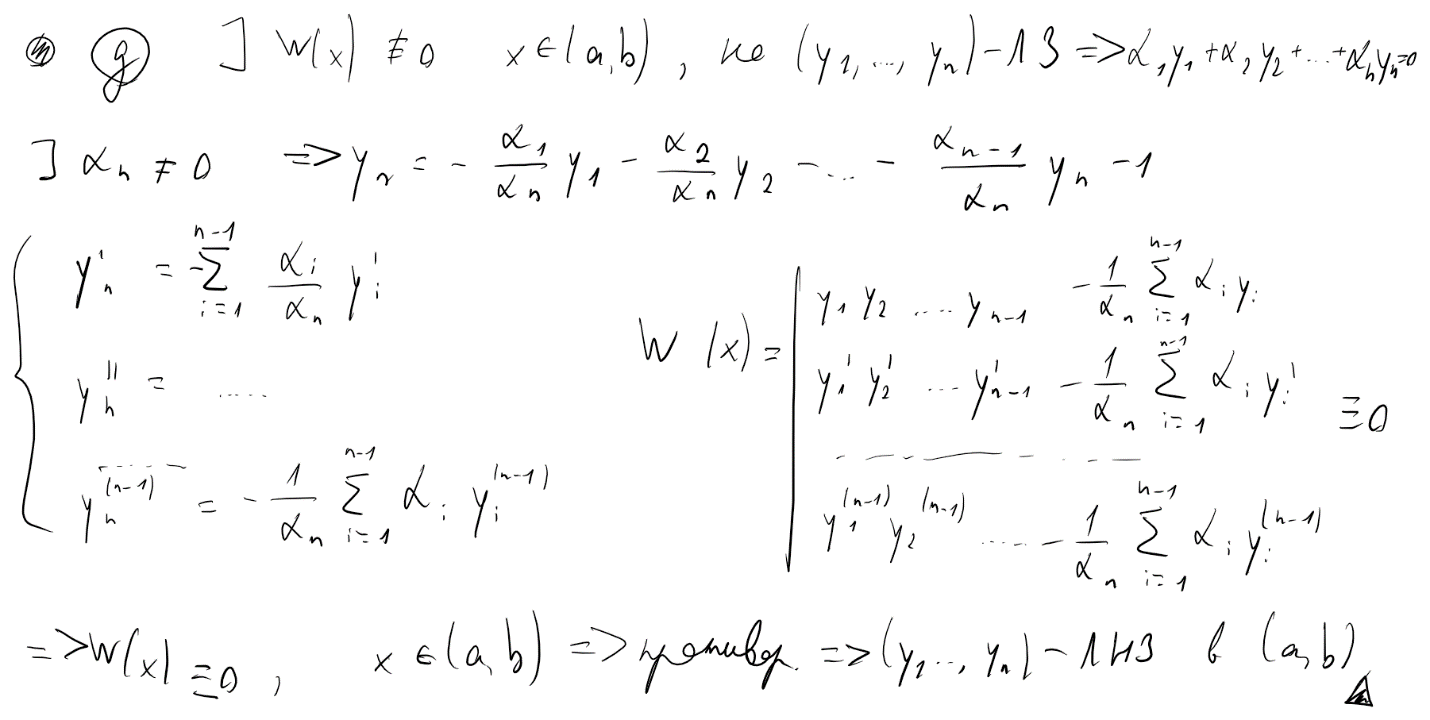 g ] W(x) ≢ 0 x ∈ (a,b), но (y₁, ..., yₙ) – ЛЗ => α₁y₁ + α₂y₂ + ... + αₙyₙ = 0
] αₙ ≠ 0 => yₙ = - α₁/αₙ y₁ - α₂/αₙ y₂ - ... - αₙ₋₁/αₙ yₙ - 1
y'ₙ = - ∑_{i=1}^{n-1} αᵢ/αₙ y'ᵢ
y''ₙ = .....
yₙ^{(n-1)} = - 1/αₙ ∑_{i=1}^{n-1} αᵢ yᵢ^{(n-1)}
W(x) = | y₁ y₂ .... yₙ₋₁ - 1/αₙ ∑_{i=1}^{n-1} αᵢ yᵢ
y₁' y₂' ... y'ₙ₋₁ - 1/αₙ ∑_{i=1}^{n-1} αᵢ yᵢ' ≡ 0
y₁^{(n-1)} y₂^{(n-1)} ..... - 1/αₙ ∑_{i=1}^{n-1} αᵢ yᵢ^{(n-1)}
=> W(x) ≡ 0, x ∈ (a,b) => противор. => (y₁..., yₙ) – ЛНЗ в (a,b)